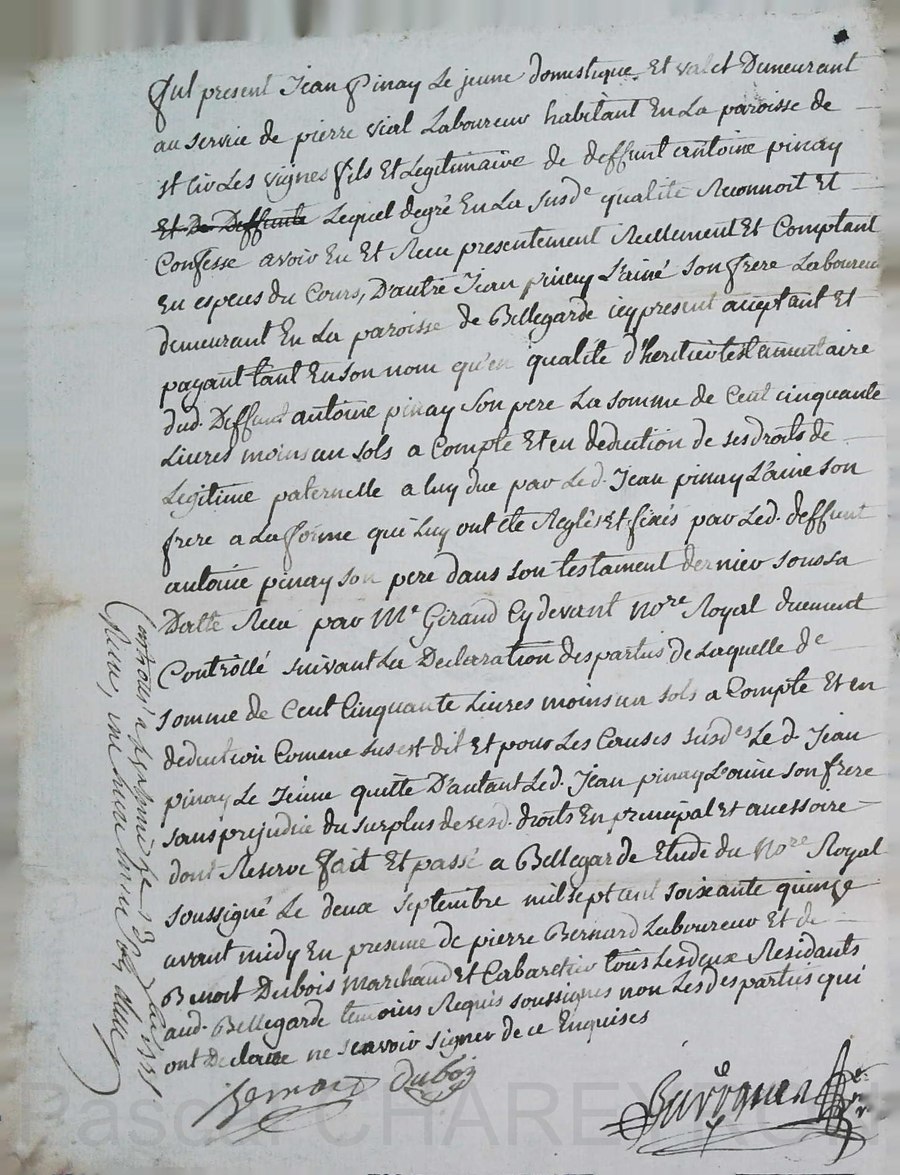 Fut present Jean Pinay Le jeune domestique Et valet Demeurant
au service de pierre vial Laboureur habitant En La paroisse de
st Cir Les vignes fils Et Legitimaire de deffunt antoine pinay
Et De Deffunte Lequel degré En La susde qualité Reconnoit Et
Confesse avoir Eu Et Receu presentement Reellement Et Comptant
En especes du Cours, D'autre Jean pinay L'ainé son frere Laboureur
demeurant En La paroisse de Bellegarde icy present acceptant Et
payant tant En son nom qu'en qualite d'heritier testamentaire
dud. Deffunt antoine pinay son pere La somme de Cent cinquante
Livres moins un sols a Compte Et en deduction de ses droits de
Legitime paternelle a luy due par Led. Jean pinay L'ainé son
frere a La forme qui Luy ont été Reglés Et fixés par Led. deffunt
antoine pinay son pere dans son testament dernier sous sa
Datte Receu par Me Giraud Cy devant Nore Royal duement
Controllé suivant La Declarration des parties de Laquelle de
somme de Cent Cinquante Livres moins un sols a Compte Et en
deduction Comme sus est dit Et pour Les Causes susdes Led. Jean
pinay Le Jeune quitte D'autant Led. Jean pinay L'ainé son frere
sans prejudice du surplus de sesd. droits En principal et accessoire
dont Reserve fait Et passé a Bellegarde Etude du Nore Royal
soussigné Le deux septembre mil sept cent soixante quinze
avant midy En presence de pierre Bernard Laboureur Et de
Benoit Dubois Marchand Et Cabaretier tous Les deux Residants
aud. Bellegarde temoins Requis soussignes non Les des parties qui
ont Declaré ne sçavoir signer de ce Enquises
Bernard Dubois
Nre Rl
Controllé a
Receu, une Livre
Pascal CHAREYRON